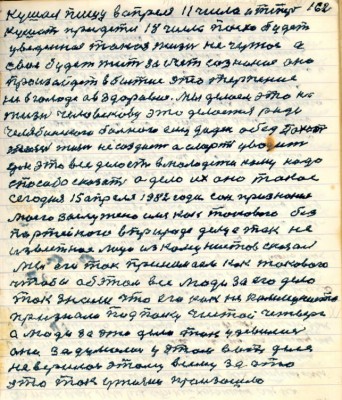 Кушал пищу в апреля 11 числа а теперь 162
Кушать придется 18 числа плохо будет
уведенная такая жизнь не чужое а
свое будет жить за счет сознания оно
произойдет в бытие это терпение
не в голоде а в здоровие. Мы делаем это в
жизни человекову это делается ради
человеческого больного ему даден обед
жизни не создает а смерть уводит
это все делость в молодети кому надо
спосибо сказать а дело их оно такое
сегодня 15 апреля 1982 года сам признания
моего заслужено имя как такового без
партейного в природе делца так не
известное лицо из комунистов сказал
Мы его так принимаем как такового
чтобы об этом все люди за его дело
так знали что его как не комуниста
признала под паску чистой четверг
а люди за это дело так узнали
они задумали у этом быть деле
наверно этому всему за это
это так случаи произошло